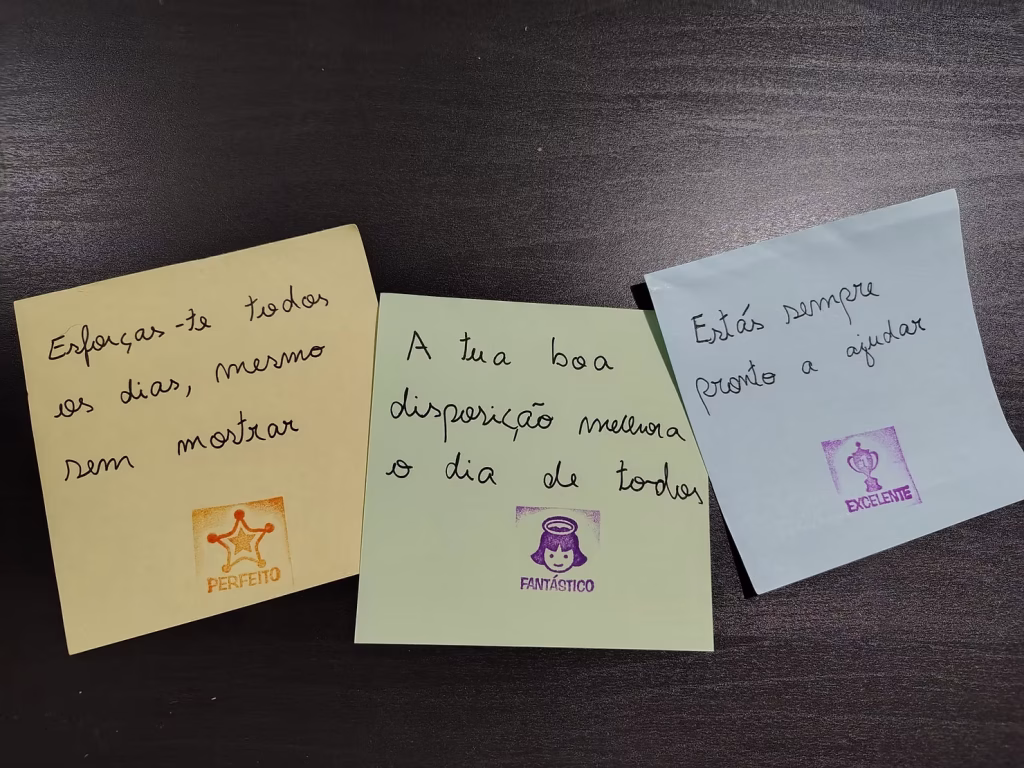 Esforças-te todos
os dias, mesmo
sem mostrar
PERFEITO
A tua boa
disposição melhora
o dia de todos
FANTÁSTICO
Estás sempre
pronto a ajudar
EXCELENTE